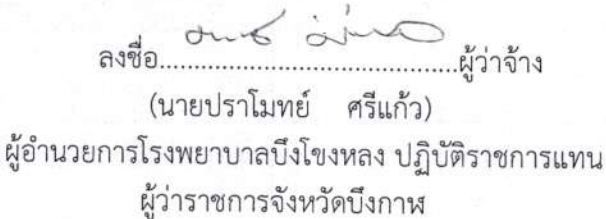 ลงชื่อ....................................ผู้ว่าจ้าง
(นายปราโมทย์ ศรีแก้ว)
ผู้อำนวยการโรงพยาบาลบึงโขงหลง ปฏิบัติราชการแทน
ผู้ว่าราชการจังหวัดบึงกาฬ